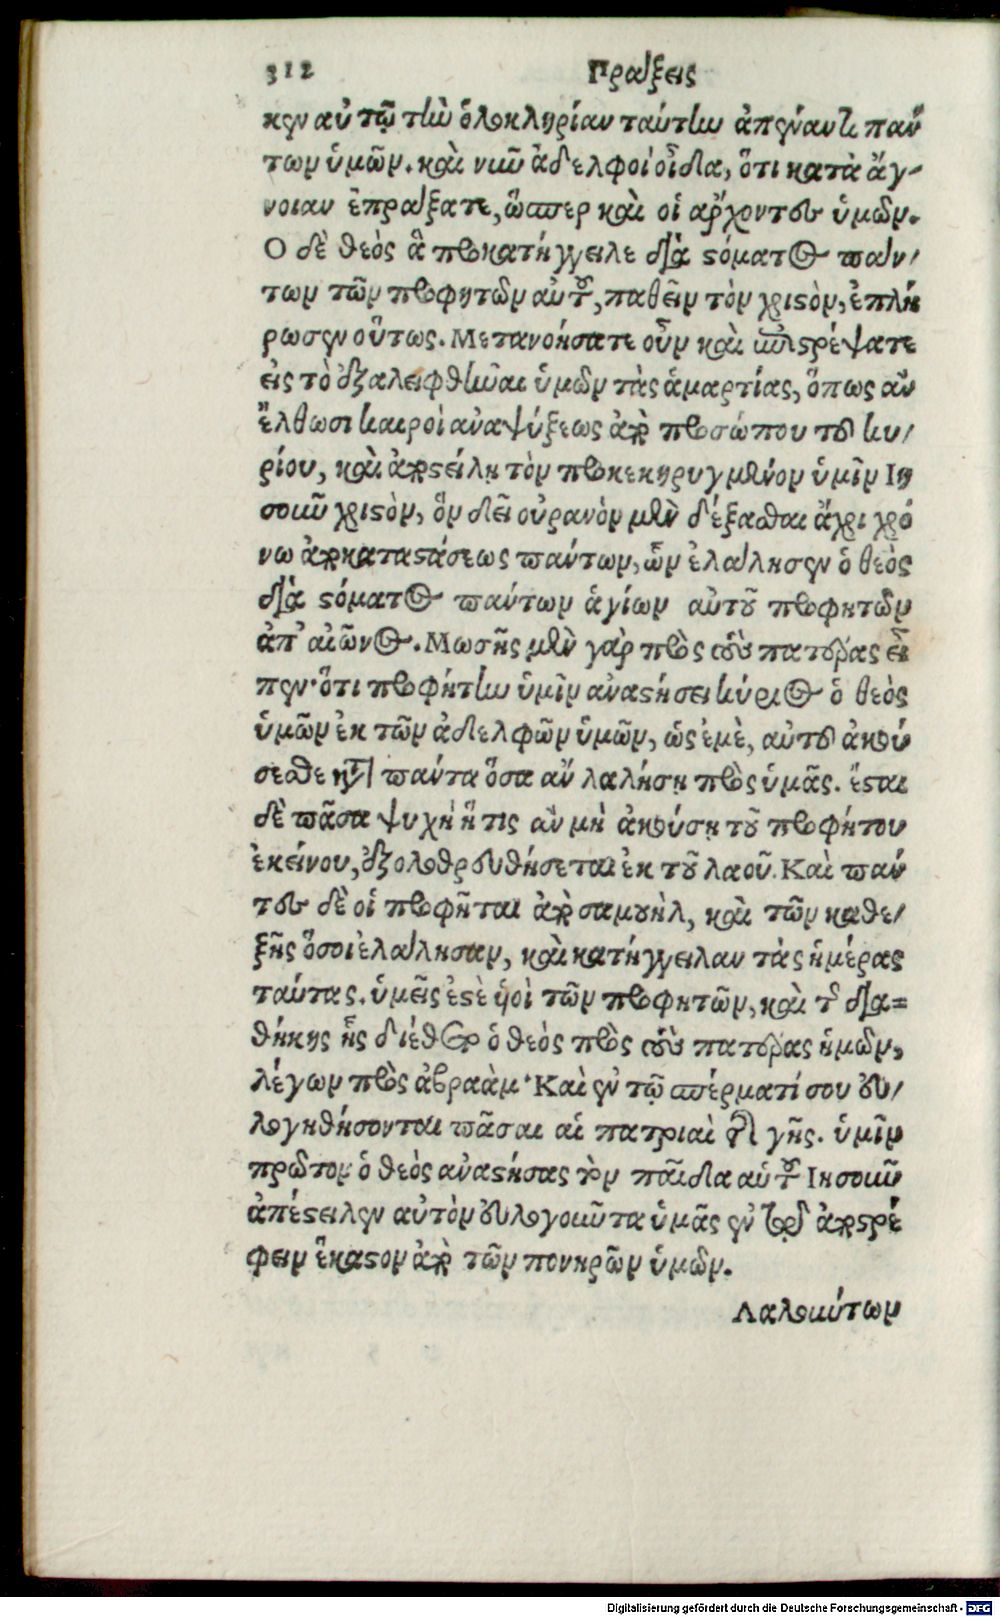 312 Πράξεις
κεν αὐτῷ τὴν ὁλοκληρίαν ταύτην ἀπέναντι πάν
των ὑμῶν. καὶ νῦν ἀδελφοὶ οἶδα, ὅτι κατὰ ἄγ-
νοιαν ἐπράξατε, ὥσπερ καὶ οἱ ἄρχοντες ὑμῶν.
Ο δὲ θεὸς ἃ προκατήγγειλε διὰ στόματος πάν/
των τῶν προφητῶν αὐτοῦ, παθεῖν τὸν χριστὸν, ἐπλή
ρωσεν οὕτως. Μετανοήσατε οὖν καὶ ἐπιστρέψατε
εἰς τὸ ἐξαλειφθῆναι ὑμῶν τὰς ἁμαρτίας, ὅπως ἂν
ἔλθωσι καιροὶ ἀναψύξεως ἀπὸ προσώπου τοῦ κυ/
ρίου, καὶ ἀποστείλῃ τὸν προκεκηρυγμένον ὑμῖν Ιη
σοῦν χριστὸν, ὃν δεῖ οὐρανὸν μὲν δέξασθαι ἄχρι χρό
νων ἀποκαταστάσεως πάντων, ὧν ἐλάλησεν ὁ θεὸς
διὰ στόματος πάντων ἁγίων αὐτοῦ προφητῶν
ἀπ' αἰῶνος. Μωσῆς μὲν γὰρ πρὸς τοὺς πατέρας εἶ
πεν· ὅτι προφήτην ὑμῖν ἀναστήσει κύριος ὁ θεὸς
ὑμῶν ἐκ τῶν ἀδελφῶν ὑμῶν, ὡς ἐμὲ, αὐτοῦ ἀκού
σεσθε κατὰ πάντα ὅσα ἂν λαλήσῃ πρὸς ὑμᾶς. ἔσται
δὲ πᾶσα ψυχὴ ἥ τις ἂν μὴ ἀκούσῃ τοῦ προφήτου
ἐκείνου, ἐξολοθρευθήσεται ἐκ τοῦ λαοῦ. Καὶ πάν
τες δὲ οἱ προφῆται ἀπὸ σαμουὴλ, καὶ τῶν καθε/
ξῆς ὅσοι ἐλάλησαν, καὶ κατήγγειλαν τὰς ἡμέρας
ταύτας. ὑμεῖς ἐστὲ ὑοὶ τῶν προφητῶν, καὶ τῆς δια=
θήκης ἧς διέθετο ὁ θεὸς πρὸς τοὺς πατέρας ἡμῶν,
λέγων πρὸς ἀβραὰμ· Καὶ ἐν τῷ σπέρματί σου εὐ/
λογηθήσονται πᾶσαι αἱ πατριαὶ τῆς γῆς. ὑμῖν
πρῶτον ὁ θεὸς ἀναστήσας τὸν παῖδα αὑτοῦ Ιησοῦν
ἀπέστειλεν αὐτὸν εὐλογοῦντα ὑμᾶς ἐν τῷ ἀποστρέ
φειν ἕκαστον ἀπὸ τῶν πονηρῶν ὑμῶν.
Λαλούντων
Digitalisierung gefördert durch die Deutsche Forschungsgemeinschaft - DFG